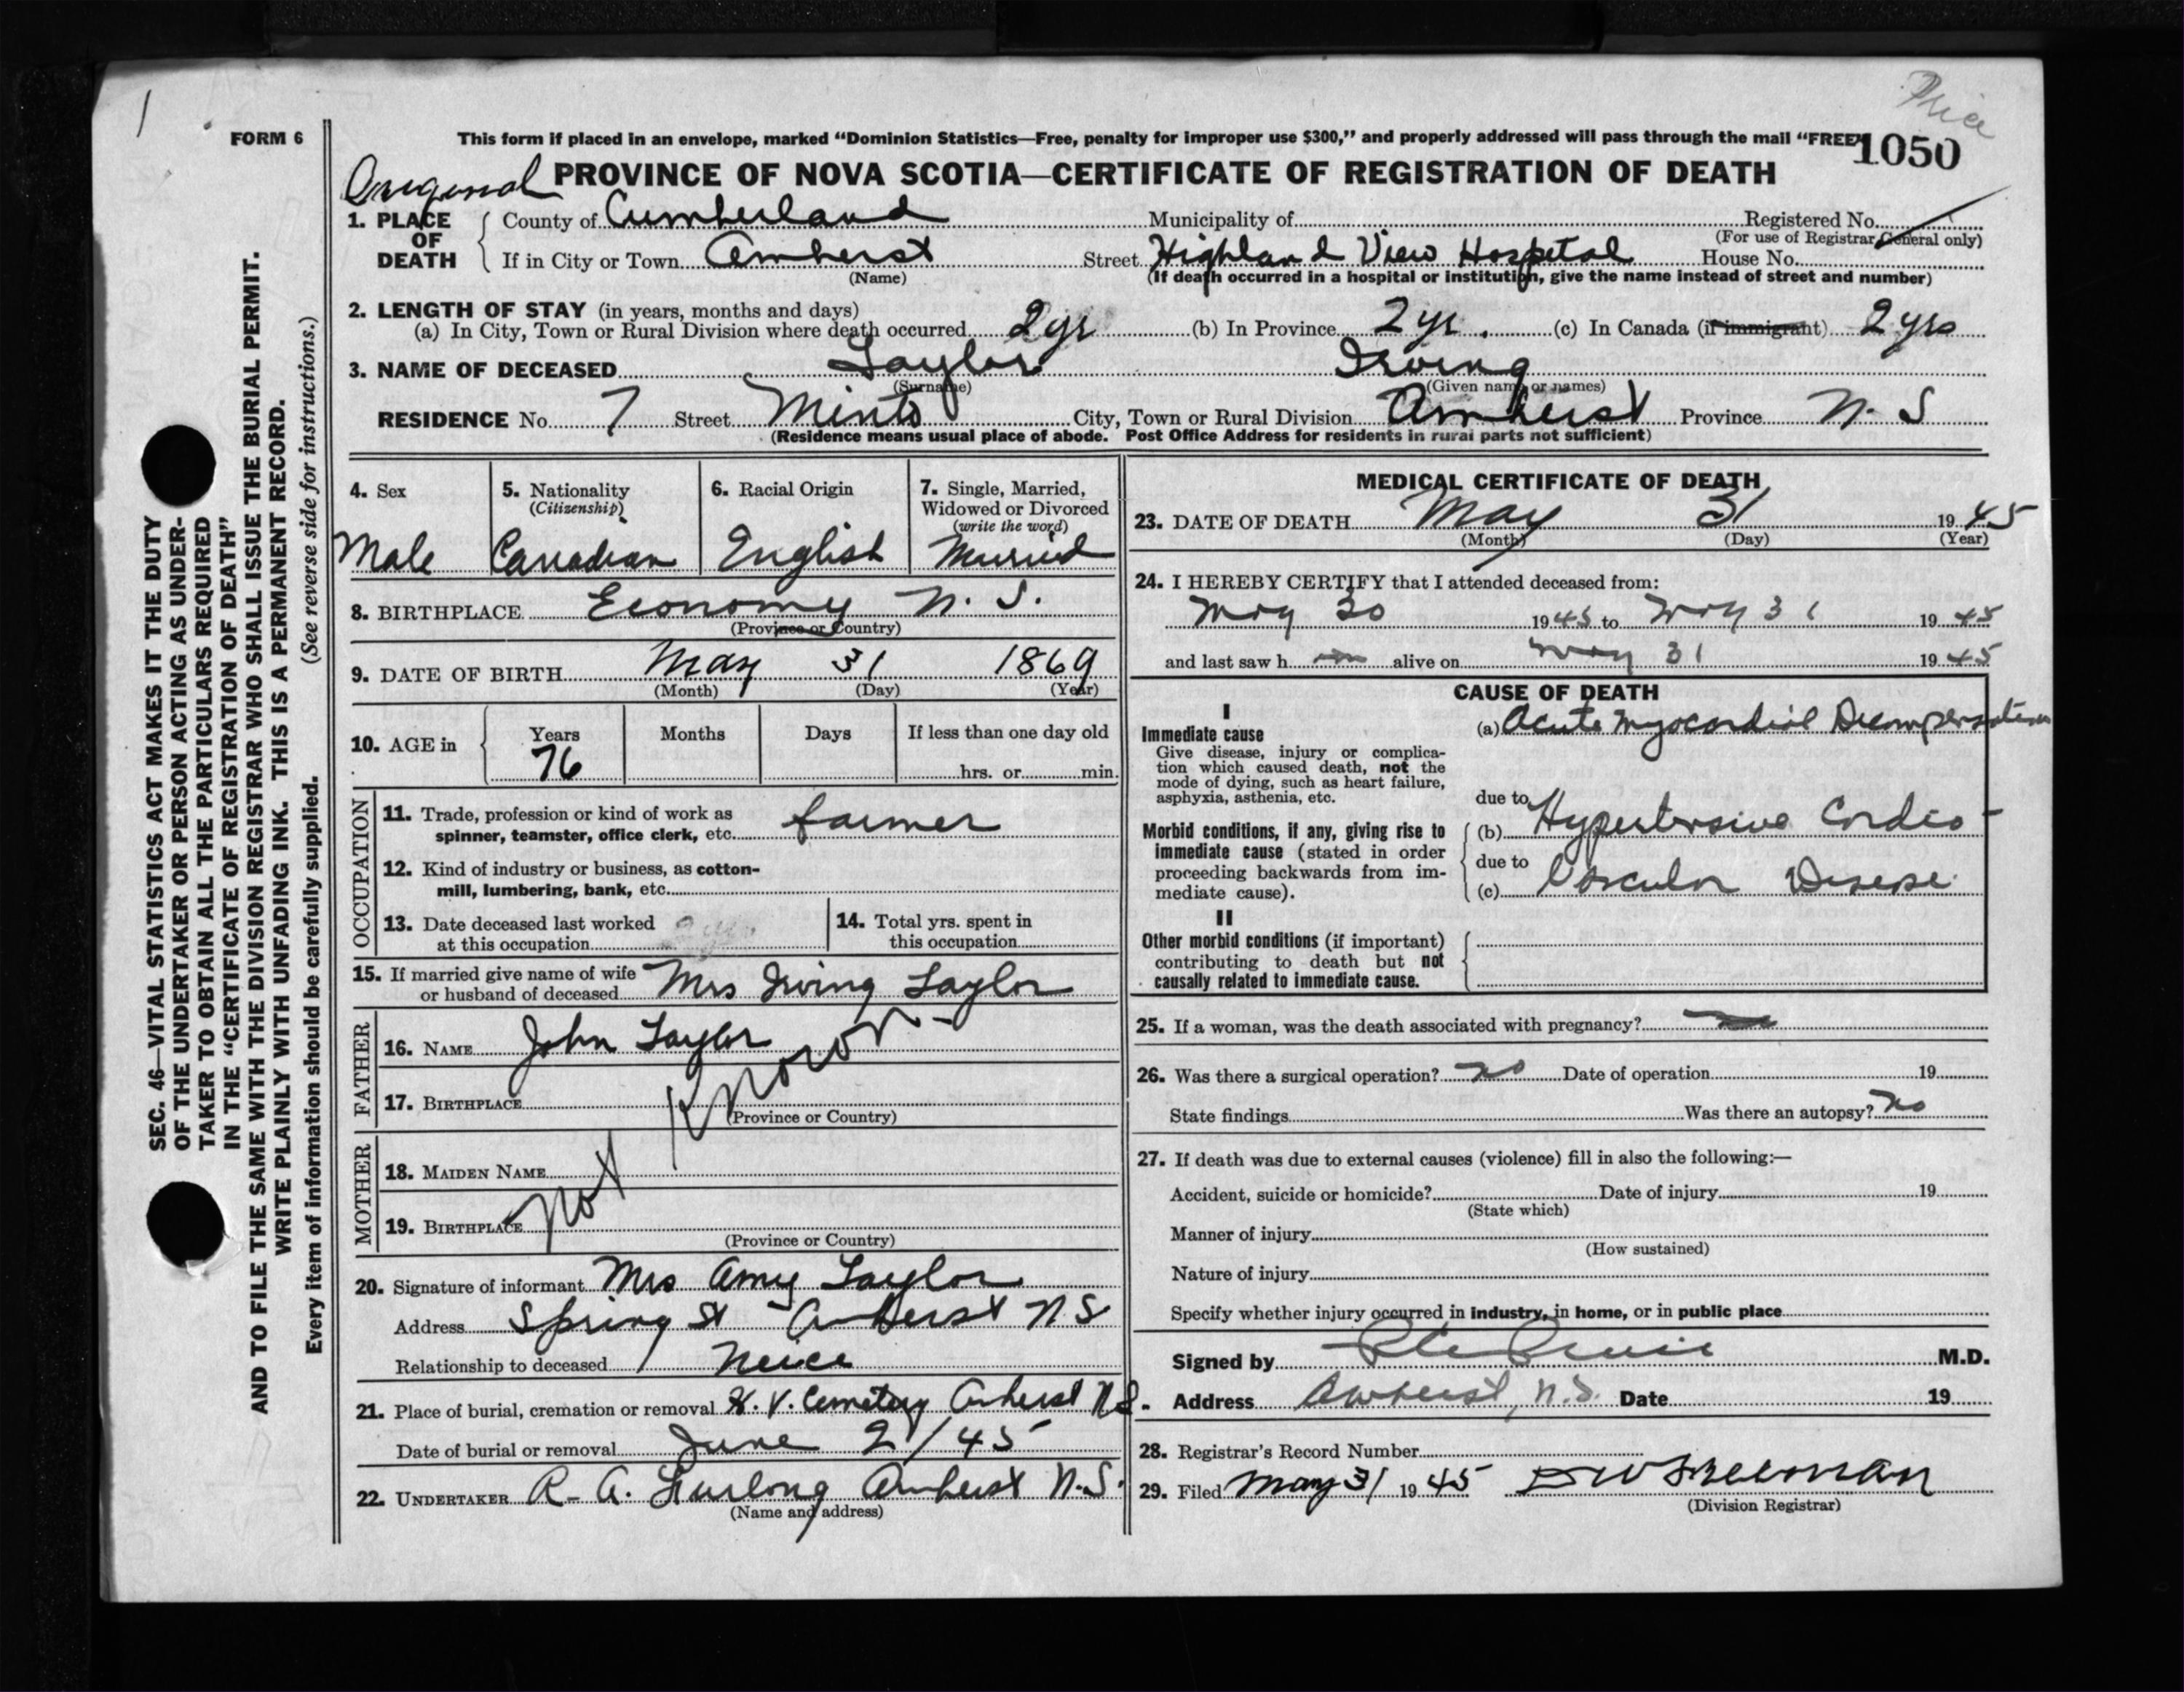 Price
1
FORM 6
This form if placed in an envelope, marked “Dominion Statistics—Free, penalty for improper use $300,” and properly addressed will pass through the mail “FREE”
1050
Original PROVINCE OF NOVA SCOTIA—CERTIFICATE OF REGISTRATION OF DEATH
1. PLACE OF DEATH County of Cumberland Municipality of Registered No.
(For use of Registrar General only)
If in City or Town Amherst Street Highland View Hospital House No.
(Name) (If death occurred in a hospital or institution, give the name instead of street and number)
2. LENGTH OF STAY (in years, months and days)
(a) In City, Town or Rural Division where death occurred 2 yr (b) In Province 2 yr. (c) In Canada (if immigrant) 2 yrs
3. NAME OF DECEASED Taylor Irving
(Surname) (Given name or names)
RESIDENCE No. 7 Street Minto City, Town or Rural Division Amherst Province N. S
(Residence means usual place of abode. Post Office Address for residents in rural parts not sufficient)
SEC. 46—VITAL STATISTICS ACT MAKES IT THE DUTY
OF THE UNDERTAKER OR PERSON ACTING AS UNDER-
TAKER TO OBTAIN ALL THE PARTICULARS REQUIRED
IN THE “CERTIFICATE OF REGISTRATION OF DEATH”
AND TO FILE THE SAME WITH THE DIVISION REGISTRAR WHO SHALL ISSUE THE BURIAL PERMIT.
WRITE PLAINLY WITH UNFADING INK. THIS IS A PERMANENT RECORD.
Every item of information should be carefully supplied. (See reverse side for instructions.)
4. Sex 5. Nationality 6. Racial Origin 7. Single, Married,
(Citizenship) Widowed or Divorced
(write the word)
Male Canadian English Married
8. BIRTHPLACE Economy N. S.
(Province or Country)
9. DATE OF BIRTH May 31 1869
(Month) (Day) (Year)
10. AGE in Years Months Days If less than one day old
76 hrs. or min.
OCCUPATION
11. Trade, profession or kind of work as
spinner, teamster, office clerk, etc. farmer
12. Kind of industry or business, as cotton-
mill, lumbering, bank, etc.
13. Date deceased last worked
at this occupation
14. Total yrs. spent in
this occupation
15. If married give name of wife
or husband of deceased Mrs Irving Taylor
FATHER
16. NAME John Taylor
17. BIRTHPLACE
(Province or Country)
MOTHER
18. MAIDEN NAME
19. BIRTHPLACE
(Province or Country)
not known
20. Signature of informant Mrs Amy Taylor
Address Spring St Amherst N S
Relationship to deceased Neice
21. Place of burial, cremation or removal H. V. Cemetery Amherst N.S.
Date of burial or removal June 2/45
22. UNDERTAKER R. A. Furlong Amherst N.S.
(Name and address)
MEDICAL CERTIFICATE OF DEATH
23. DATE OF DEATH May 31 1945
(Month) (Day) (Year)
24. I HEREBY CERTIFY that I attended deceased from:
May 30 1945 to May 31 1945
and last saw him alive on May 31 1945
CAUSE OF DEATH
I
Immediate cause (a) Acute Myocardial Decompensation
Give disease, injury or complica-
tion which caused death, not the
mode of dying, such as heart failure,
asphyxia, asthenia, etc.
due to
Morbid conditions, if any, giving rise to
immediate cause (stated in order
proceeding backwards from im-
mediate cause).
(b) Hypertensive Cardio-
due to
(c) Vascular Disease
II
Other morbid conditions (if important)
contributing to death but not
causally related to immediate cause.
25. If a woman, was the death associated with pregnancy?
26. Was there a surgical operation? no Date of operation 19
State findings Was there an autopsy? no
27. If death was due to external causes (violence) fill in also the following:—
Accident, suicide or homicide? Date of injury 19
(State which)
Manner of injury
(How sustained)
Nature of injury
Specify whether injury occurred in industry, in home, or in public place
Signed by M.D.
Address Amherst, N.S. Date 19
28. Registrar's Record Number
29. Filed May 31 1945
(Division Registrar)